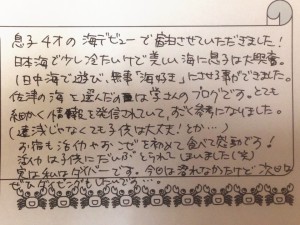 息子4才の海デビューで宿泊させていただきました!
日本海で少し冷たいけど美しい海に息子は大興奮。
1日中海で遊び、無事"海好き"にさせる事ができました。
佐津の海を選んだのは学さんのブログです。とても
細かく情報を発信されていて、すごく参考になりました。
(遠浅じゃなくても子供は大丈夫!とか…)
お宿も活イカやおこぜを初めて食べて感動です!
活イカは子供にだいぶとられてしまいました(笑)
実は私はダイバーです。今回は潜れなかたけど次回は
ぜひダイビングもしたいです…。